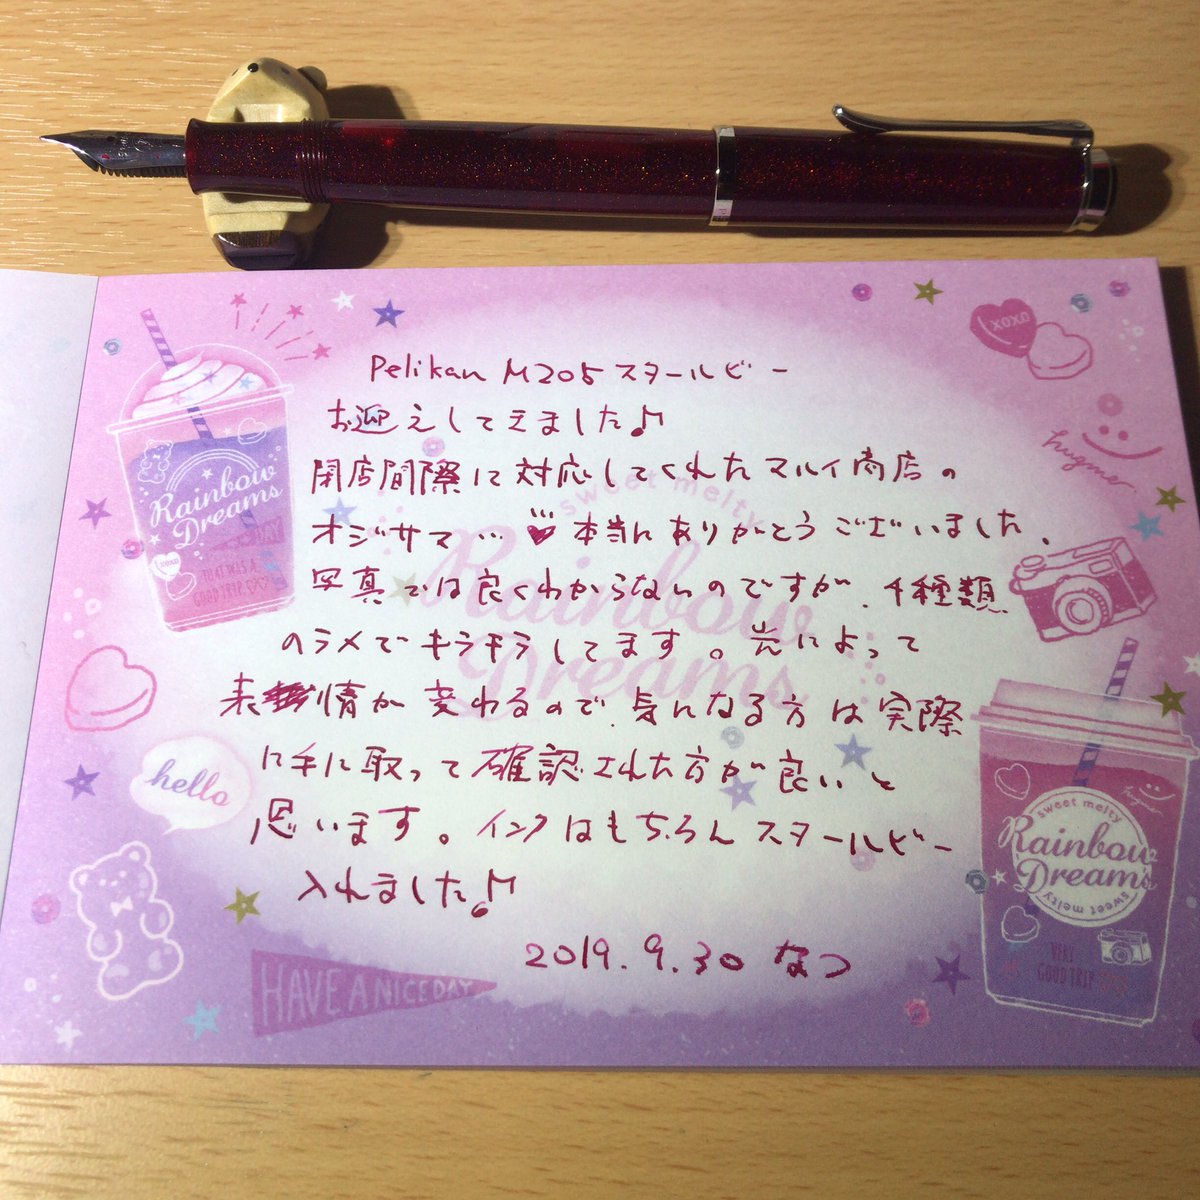 Pelikan M205 スタールビー
お迎えしてきました♪
閉店間際に対応してくれたマルイ商店の
オジサマ…♥本当にありがとうございました。
写真では良くわからないのですが、4種類
のラメでキラキラしてます。光によって
表情が変わるので、気になる方は実際
に手に取って確認された方が良いと
思います。インクはもちろんスタールビー
入れました♪
2019.9.30 なつ
Rainbow
Dreams
xoxo
JUST WAS A
GOOD TRIP
XOXO
hugme
sweet melty
Rainbow
Dreams
hello
HAVE A NICE DAY
sweet melty
Rainbow
Dreams
sweet melty
VERY
GOOD TRIP